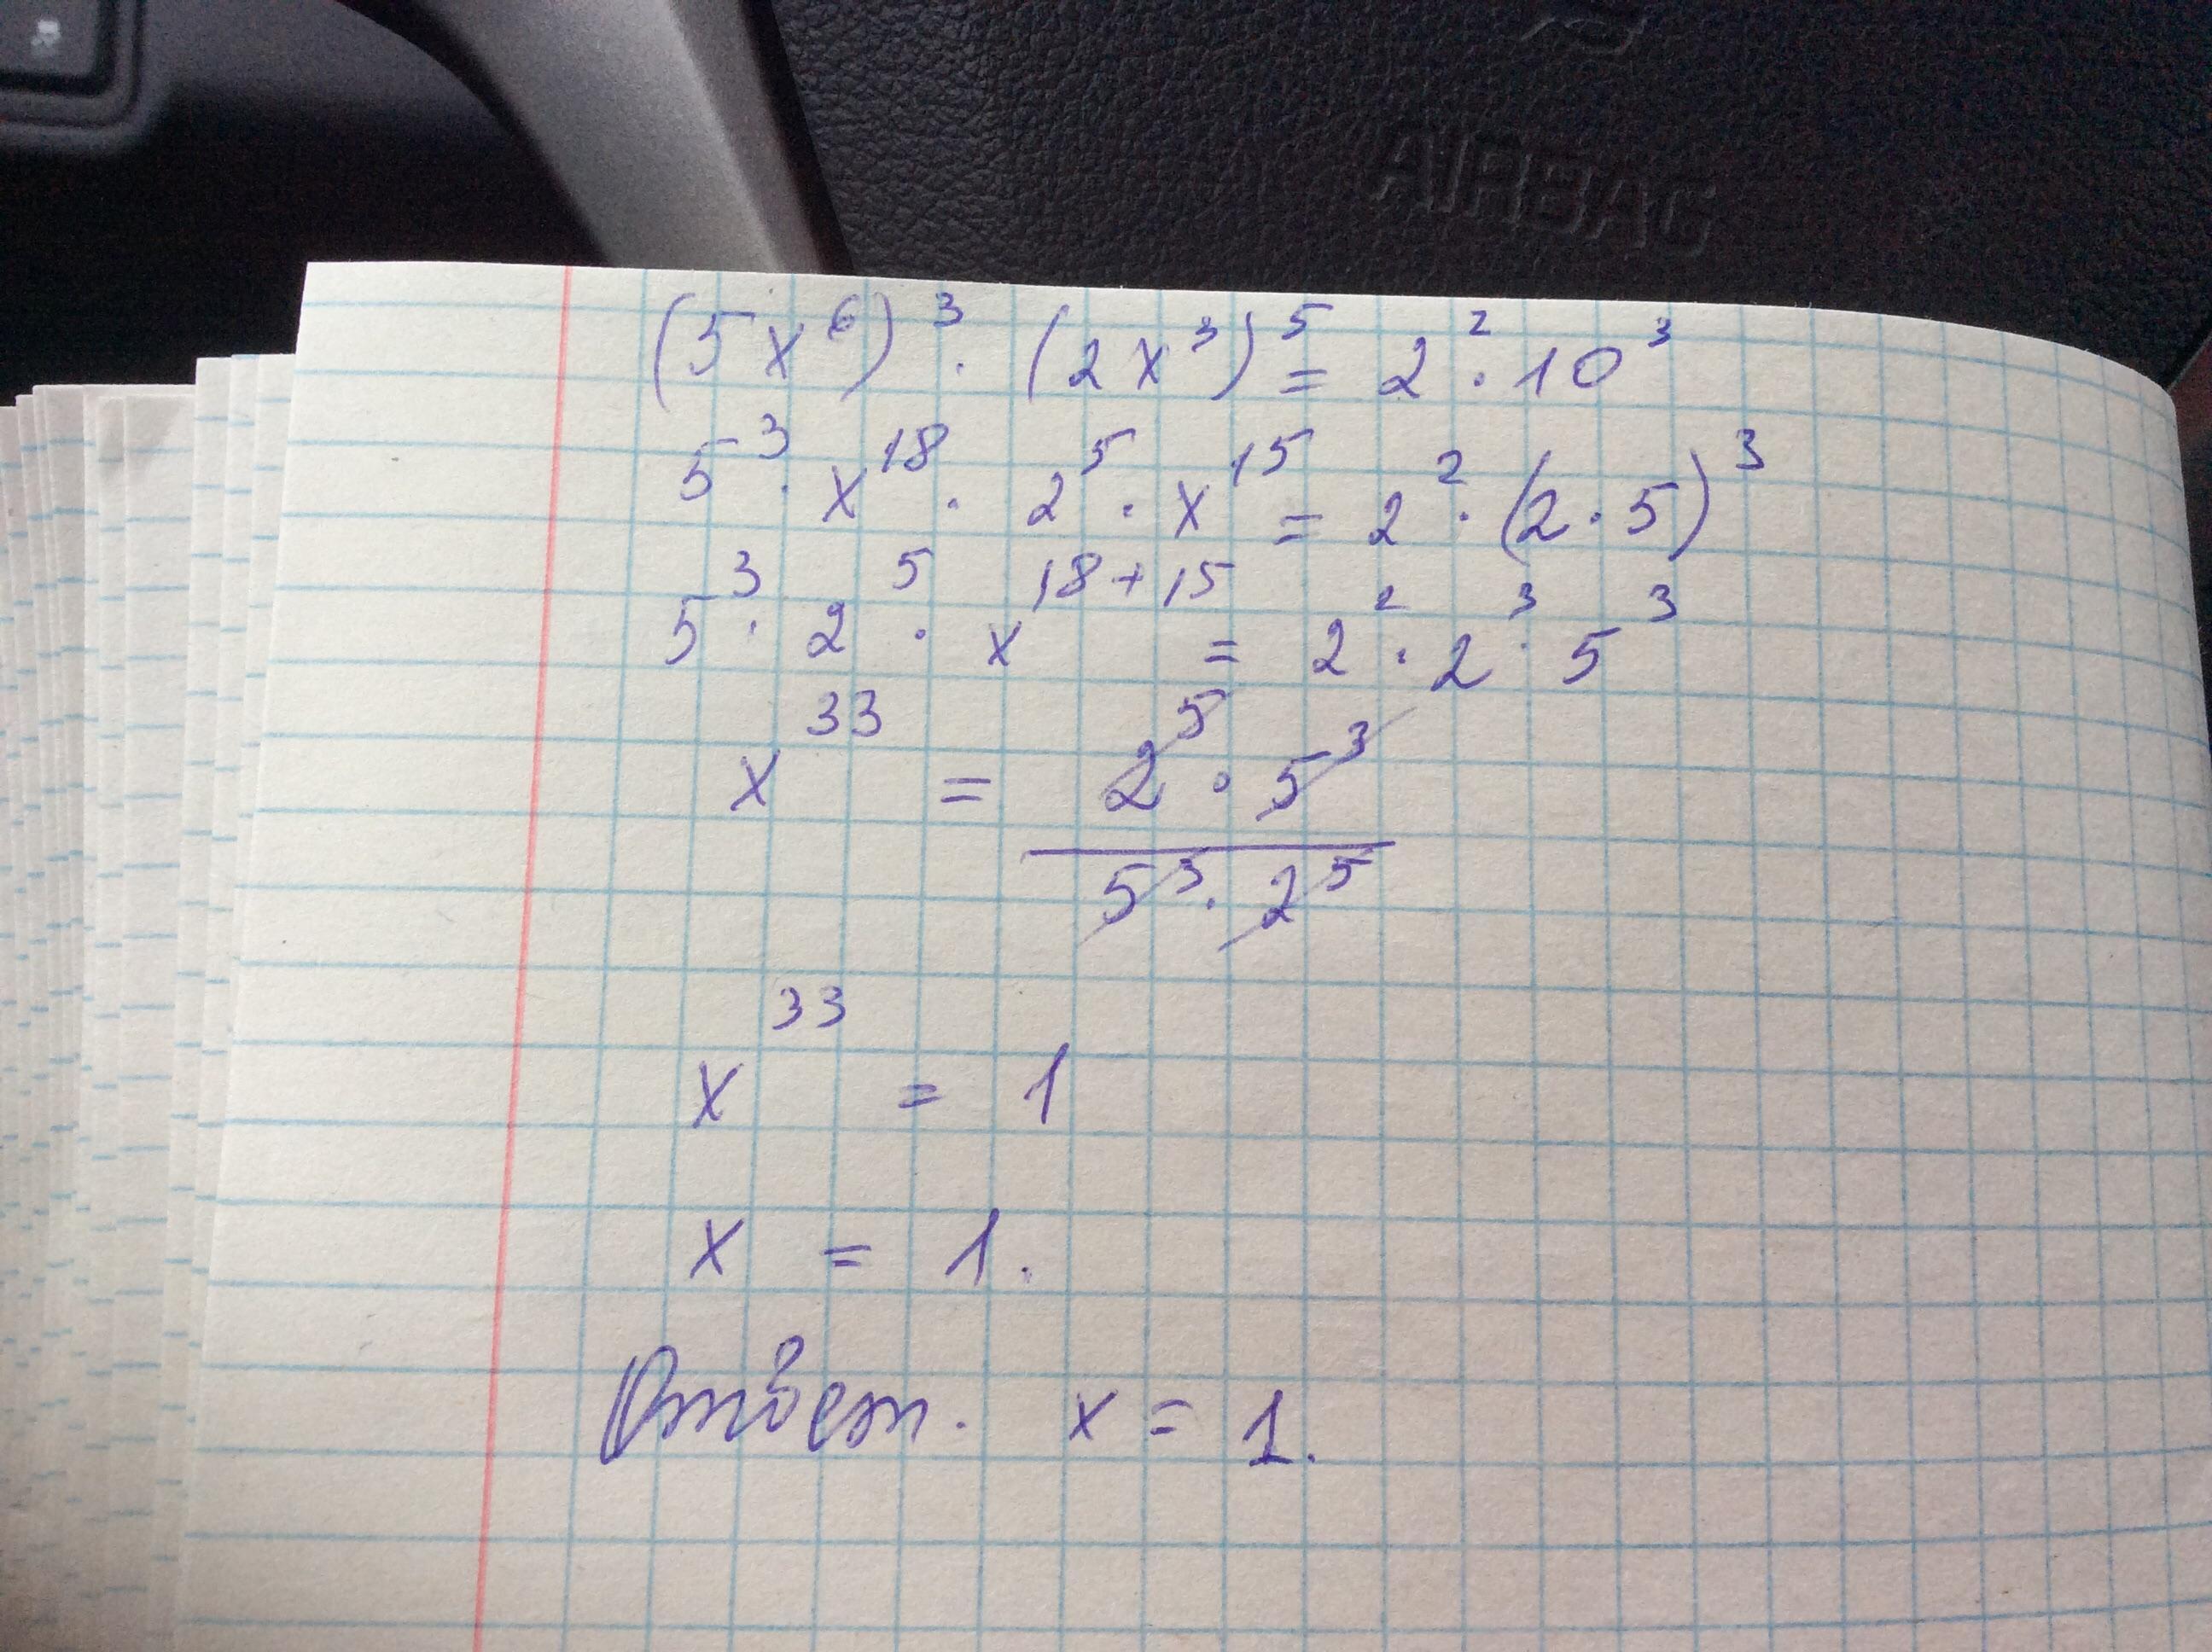 AIRBAG
(5x⁶)³ · (2x³)⁵ = 2² · 10³
5³ · x¹⁸ · 2⁵ · x¹⁵ = 2² · (2 · 5)³
5³ · 2⁵ · x¹⁸⁺¹⁵ = 2² · 2³ · 5³
x³³ = 2⁵ · 5³ / 5³ · 2⁵
x³³ = 1
x = 1.
Ответ. x = 1.